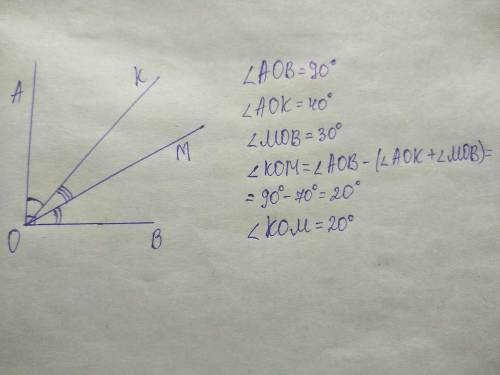 A
K
M
O
B
∠AOB=90°
∠AOK=40°
∠MOB=30°
∠KOM=∠AOB-(∠AOK+∠MOB)=
=90°-70°=20°
∠KOM=20°